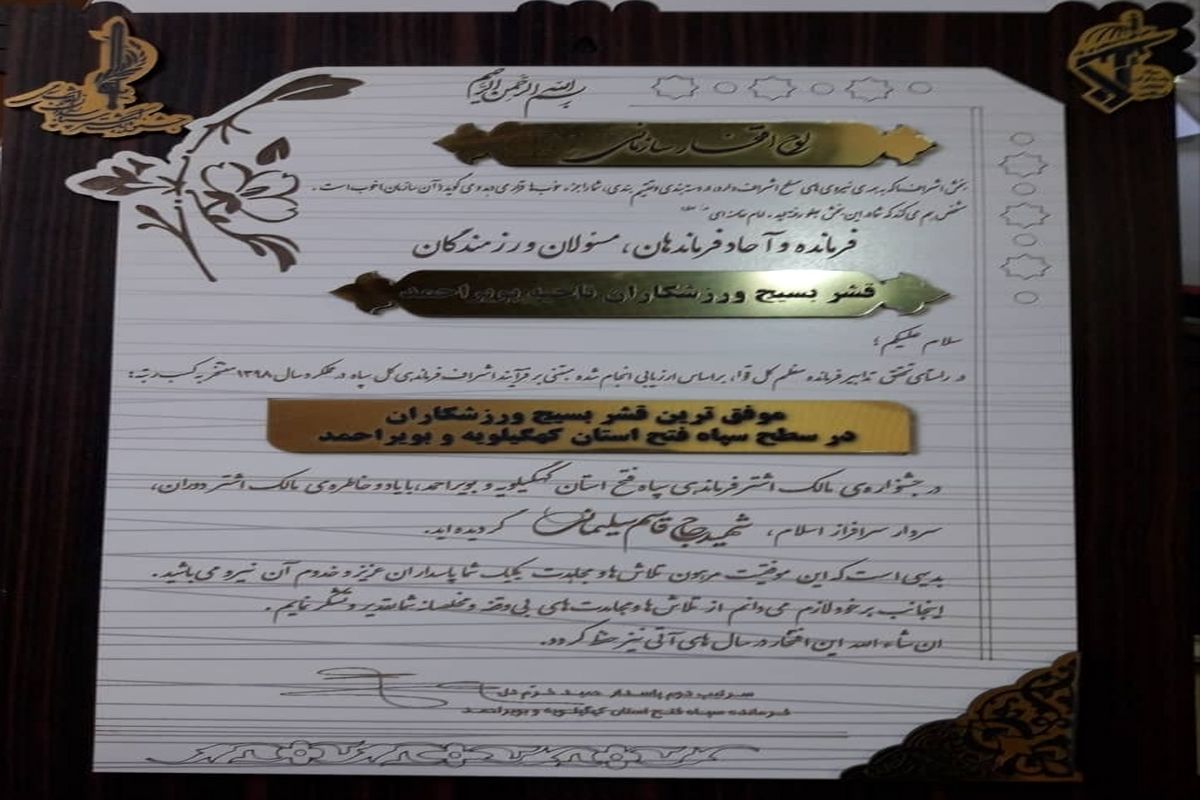 بسم الله الرحمن الرحیم
لوح افتخار سازمانی
بخش اشراف ما که به همه‌ی نیروی‌های سطح اشراف دارد، در دسته‌بندی و تقسیم بندی، شما را جزء خوب‌ها قرار می‌دهد و می‌گوید آن سازمان خوب است.
مشخص هم می‌کند که شما در این بخش جلو رفته‌اید. امام خامنه‌ای
فرمانده و آحاد فرماندهان، مسئولان و رزمندگان
قشر بسیج ورزشکاران ناحیه بویراحمد
سلام علیکم؛
در راستای تحقق تدابیر فرمانده معظم کل قوا، بر اساس ارزیابی انجام شده مبتنی بر فرآیند اشراف فرماندهی کل سپاه در عملکرد سال ۱۳۹۸ مفتخر به کسب رتبه:
موفق ترین قشر بسیج ورزشکاران
در سطح سپاه فتح استان کهگیلویه و بویراحمد
در جشنواره‌ی مالک اشتر فرماندهی سپاه فتح استان کهگیلویه و بویراحمد، با یاد و خاطره‌ی مالک اشتر دوران،
سردار سرافراز اسلام، شهید حاج قاسم سلیمانی گردیده‌اید.
بدیهی است که این موفقیت مرهون تلاش‌ها و مجاهدت یکایک شما پاسداران عزیز و خدوم آن نیرو می‌باشد.
اینجانب بر خود لازم می‌دانم از تلاش‌ها و مجاهدت‌های بی‌وقفه و مخلصانه شما تقدیر و تشکر نمایم.
ان شاء الله این افتخار در سال های آتی نیز حفظ گردد.
سرتیپ دوم پاسدار حمید خرّم دل
فرمانده سپاه فتح استان کهگیلویه و بویراحمد